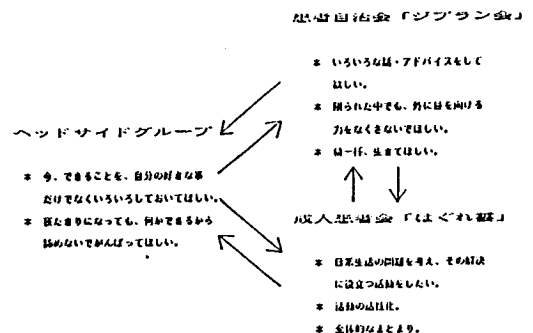 患者自治会「ジプラン会」
* いろいろな話・アドバイスをして
ほしい。
* 限られた中でも、外に目を向ける
力をなくさないでほしい。
* 生きてほしい。
ヘッドサイドグループ
* 今、できることを、自分の好きな事
だけでなくいろいろしておいてほしい。
* 寝たきりになっても、何かできるから
諦めないでがんばってほしい。
成人患者会「はぐれ雲」
* 日常生活の問題を考え、その解決
に役立つ活動をしたい。
* 活動の活性化。
* 全体的なまとまり。